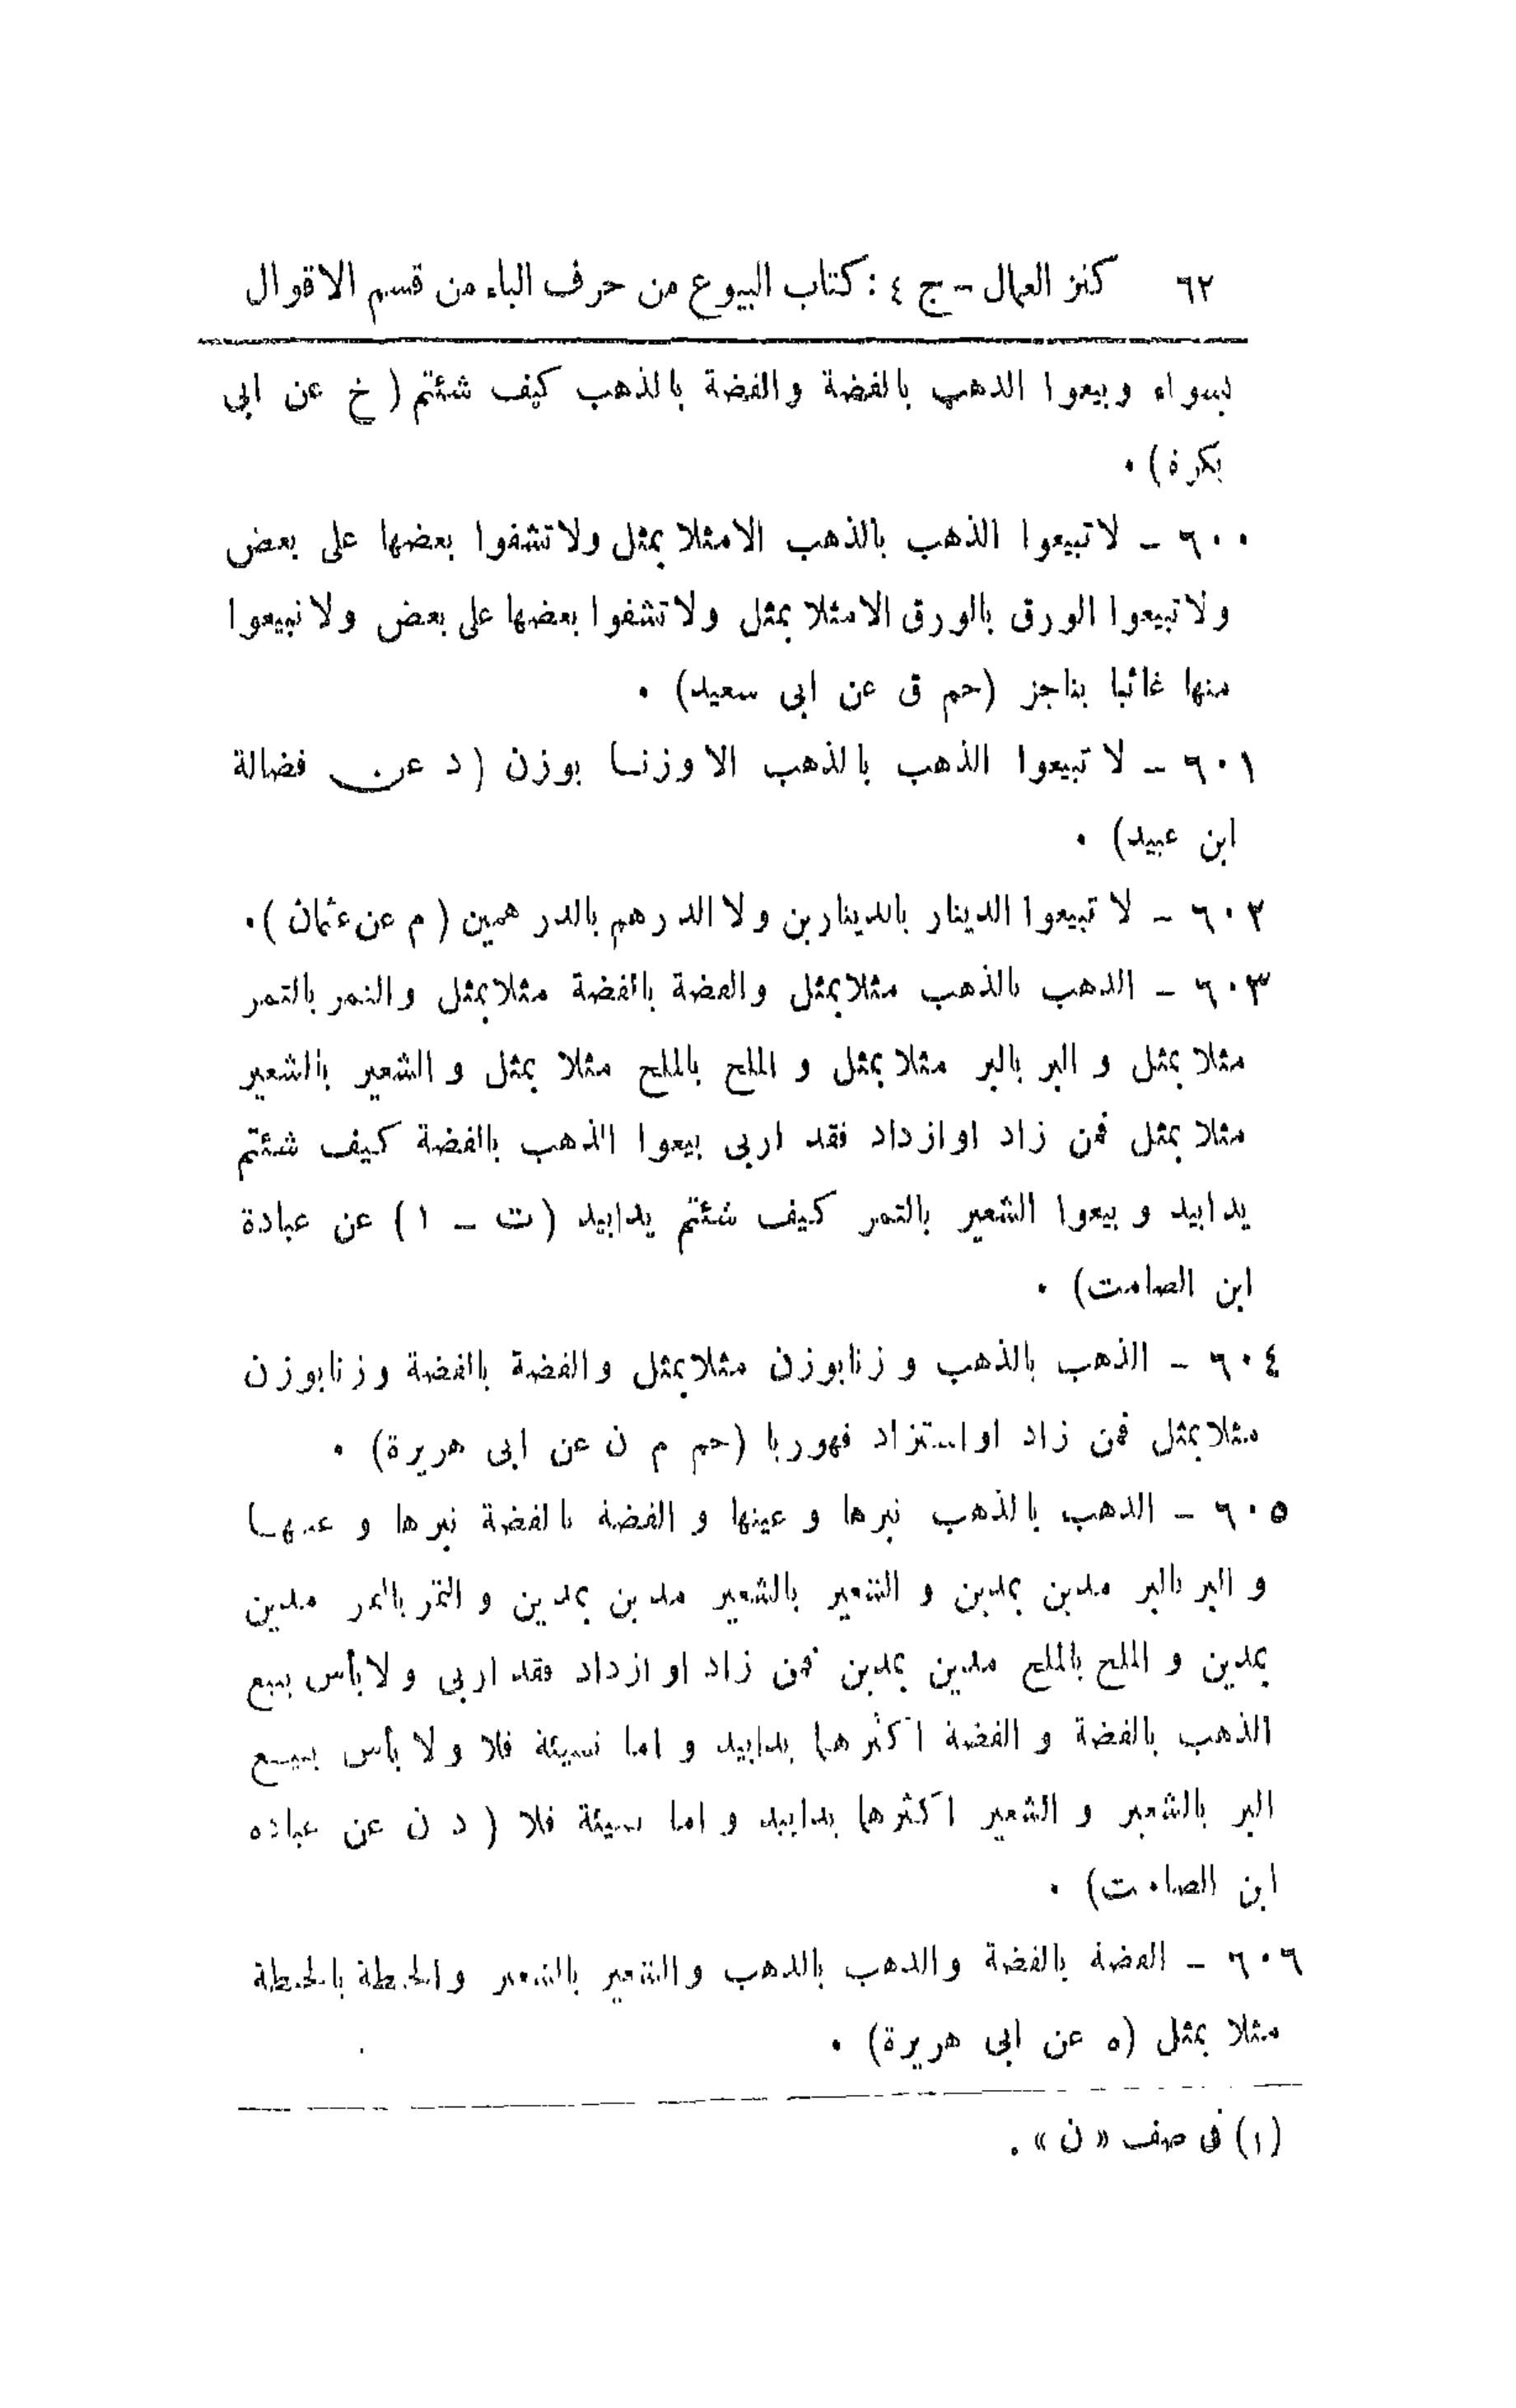 ٦٢ كنز العمال - ج ٤ : كتاب البيوع من حرف الباء من قسم الاقوال
بسواء وبيعوا الذهب بالفضة والفضة بالذهب كيف شئتم ( خ عن ابى
بكرة) ٠
٦٠٠ - لا تبيعوا الذهب بالذهب الا مثلا بمثل ولا تشفوا بعضها على بعض
ولا تبيعوا الورق بالورق الا مثلا بمثل ولا تشفوا بعضها على بعض ولا تبيعوا
منها غائبا بناجز (حم ق عن ابى سعيد) ٠
٦٠١ - لا تبيعوا الذهب بالذهب الا وزنا بوزن ( د عن فضالة
ابن عبيد) ٠
٦٠٢ - لا تبيعوا الدينار بالدينارين ولا الدرهم بالدرهمين ( م عن عثمان ) ٠
٦٠٣ - الذهب بالذهب مثلا بمثل والفضة بالفضة مثلا بمثل والتمر بالتمر
مثلا بمثل و البر بالبر مثلا بمثل و الملح بالملح مثلا بمثل و الشعير بالشعير
مثلا بمثل فمن زاد او ازداد فقد اربى بيعوا الذهب بالفضة كيف شئتم
يدابيد و بيعوا الشعير بالتمر كيف شئتم يدابيد (ت - ١ ) عن عبادة
ابن الصامت) ٠
٦٠٤ - الذهب بالذهب و زنا بوزن مثلا بمثل والفضة بالفضة وزنا بوزن
مثلا بمثل فمن زاد او استزاد فهو ربا (حم م ن عن ابى هريرة) ٠
٦٠٥ - الذهب بالذهب تبرها و عينها و الفضة بالفضة تبرها و عينها
و البر بالبر مدين بمدين و الشعير بالشعير مدين بمدين و التمر بالتمر مدين
بمدين و الملح بالملح مدين بمدين فمن زاد او ازداد فقد اربى و لا بأس ببيع
الذهب بالفضة و الفضة اكثرهما يدابيد و اما نسيئة فلا و لا بأس ببيع
البر بالشعير و الشعير اكثرهما يدابيد و اما نسيئة فلا ( د ن عن عباده
ابن الصامت) ٠
٦٠٦ - الفضة بالفضة والذهب بالذهب والشعير بالشعير والحنطة بالحنطة
مثلا بمثل (ه عن ابى هريرة) ٠
(١) فى صف « ن » .